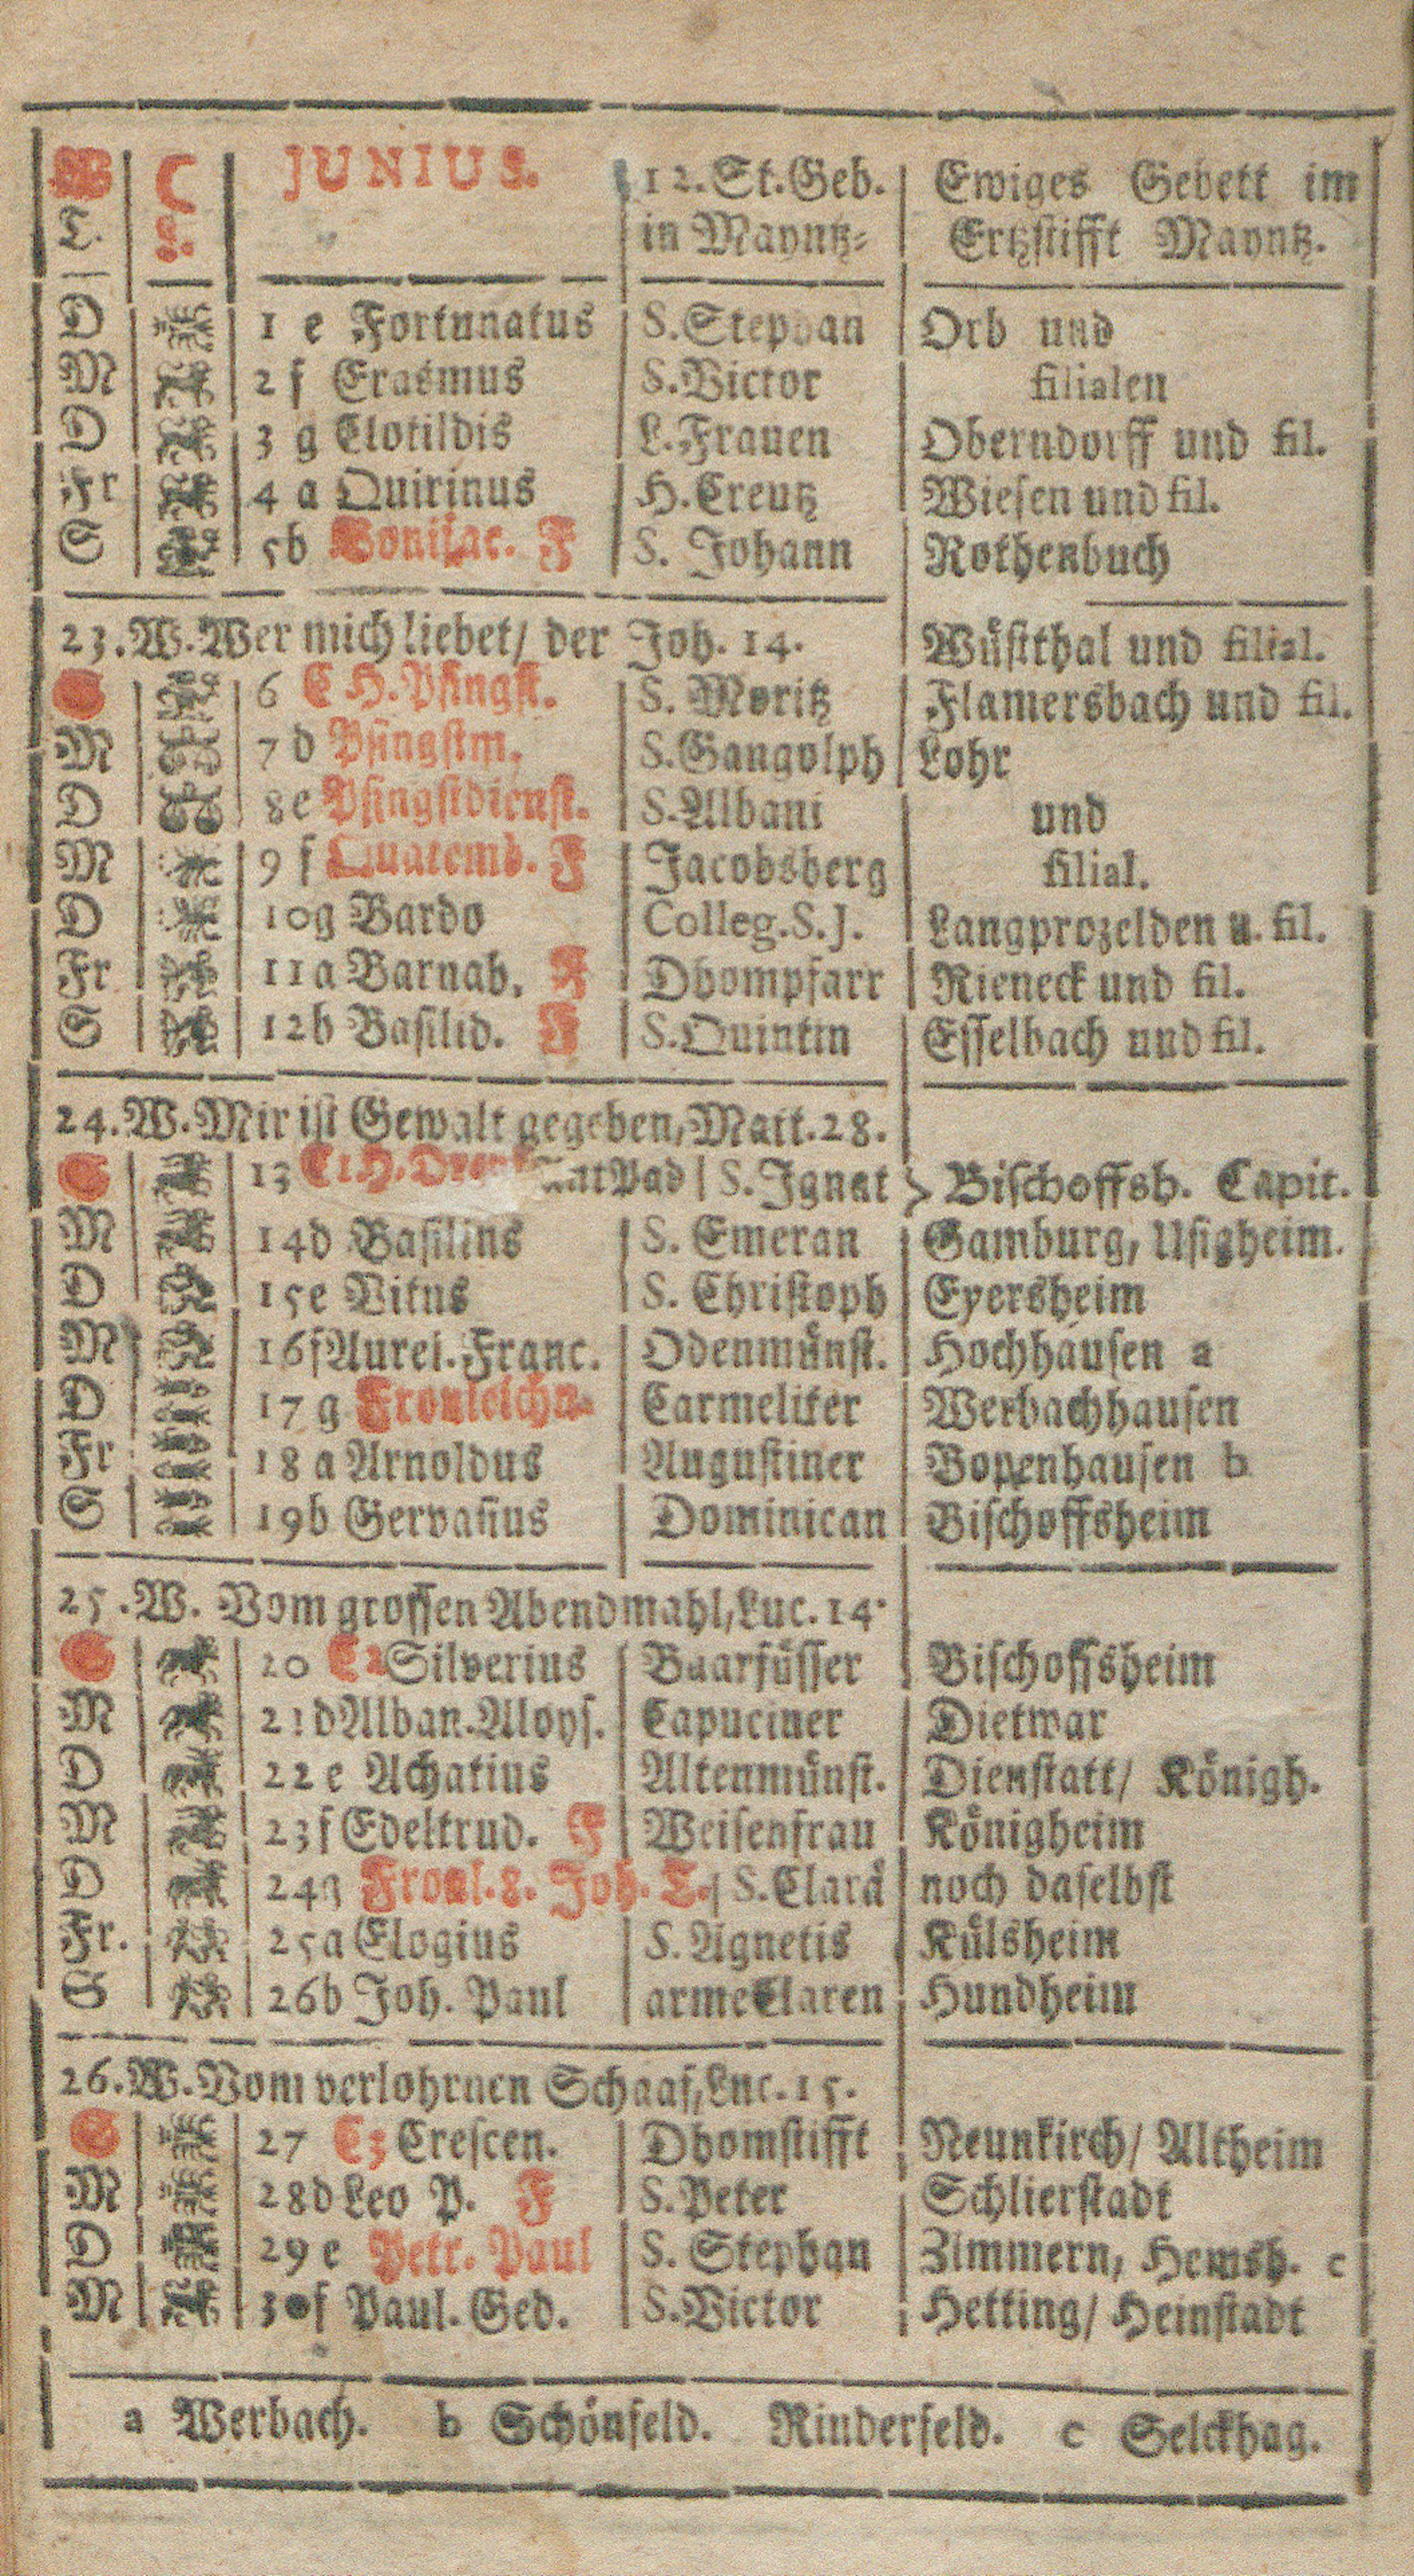 W C JUNIUS. 12. St. Geb. Ewiges Gebett im
T. L. in Mayntz- Ertzstifft Mayntz.
D 1 e Fortunatus S. Stephan Orb und
M 2 f Erasmus S. Victor filialen
D 3 g Clotildis L. Frauen Oberndorff und fil.
Fr 4 a Quirinus H. Creutz Wiesen und fil.
S 5 b Bonifac. F S. Johann Rothenbuch
23. W. Wer mich liebet/ der Joh. 14. Wüstthal und filial.
S 6 C H. Pfingst. S. Moritz Flamersbach und fil.
M 7 d Pfingstm. S. Gangolph Lohr
D 8 e Pfingstdienst. S. Albani und
M 9 f Quatemb. F Jacobsberg filial.
D 10 g Bardo Colleg. S. J. Langprozelden u. fil.
Fr 11 a Barnab. F Dhompfarr Rieneck und fil.
S 12 b Basilid. F S. Quintin Esselbach und fil.
24. W. Mir ist Gewalt gegeben, Matt. 28.
S 13 C 1 H. Pad S. Ignat Bischoffsh. Capit.
M 14 d Basilius S. Emeran Gamburg, Usigheim.
D 15 e Vitus S. Christoph Eyersheim
M 16 f Aurel. Franc. Odenmünst. Hochhausen a
D 17 g Fronleichn. Carmeliter Werbachhausen
Fr 18 a Arnoldus Augustiner Bopenhausen b
S 19 b Gervasius Dominican Bischoffsheim
25. W. Vom grossen Abendmahl, Luc. 14.
S 20 C 2 Silverius Baarfüsser Bischoffsheim
M 21 d Alban. Aloys. Capuciner Dietwar
D 22 e Achatius Altenmünst. Dienstatt/ Königh.
M 23 f Edeltrud. F Weisenfrau Königheim
D 24 g Fronl. 8. Joh. T. S. Clarä noch daselbst
Fr. 25 a Elogius S. Agnetis Külsheim
S 26 b Joh. Paul arme Claren Hundheim
26. W. Vom verlohrnen Schaaf, Luc. 15.
S 27 C 3 Crescen. Dhomstifft Neunkirch/ Altheim
M 28 d Leo P. F S. Peter Schlierstadt
D 29 e Petr. Paul S. Stephan Zimmern, Hemsb. c
M 30 f Paul. Ged. S. Victor Hetting/ Heinstadt
a Werbach. b Schönfeld. Rinderfeld. c Selckhag.